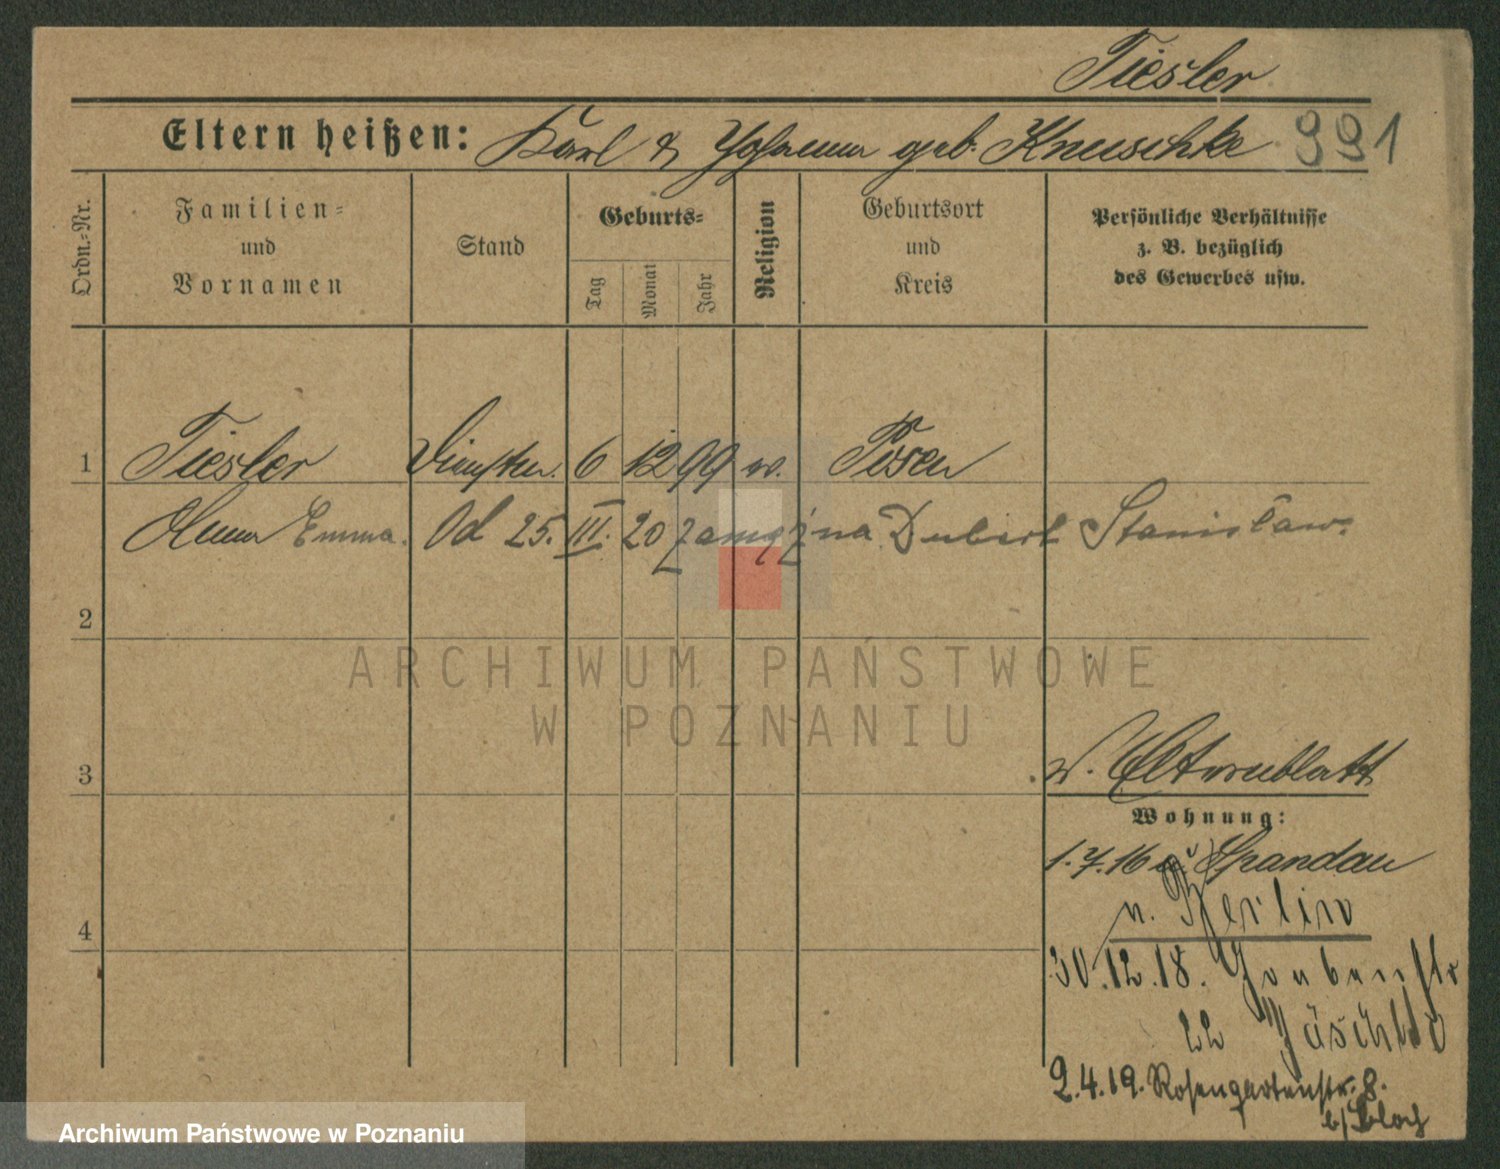 Tiesler
Eltern heißen: Karl & Johanna geb. Knuschke 991
Ordn.-Nr. Familien- und Vornamen Stand Geburts- Tag Monat Jahr Religion Geburtsort und Kreis Persönliche Verhältnisse z. B. bezüglich des Gewerbes usw.
1 Tiesler 6 12 99 w. Posen
Emma. Od 25. III. 20 zamężna Dubert Stanisław.
2
ARCHIWUM PAŃSTWOWE
W POZNANIU
3 Elternblatt
Wohnung:
1.7.16 n. Spandau
n. Berlin
4
30.12.18.
22
2.4.19. Rosengartenstr. 8.
b/
Archiwum Państwowe w Poznaniu